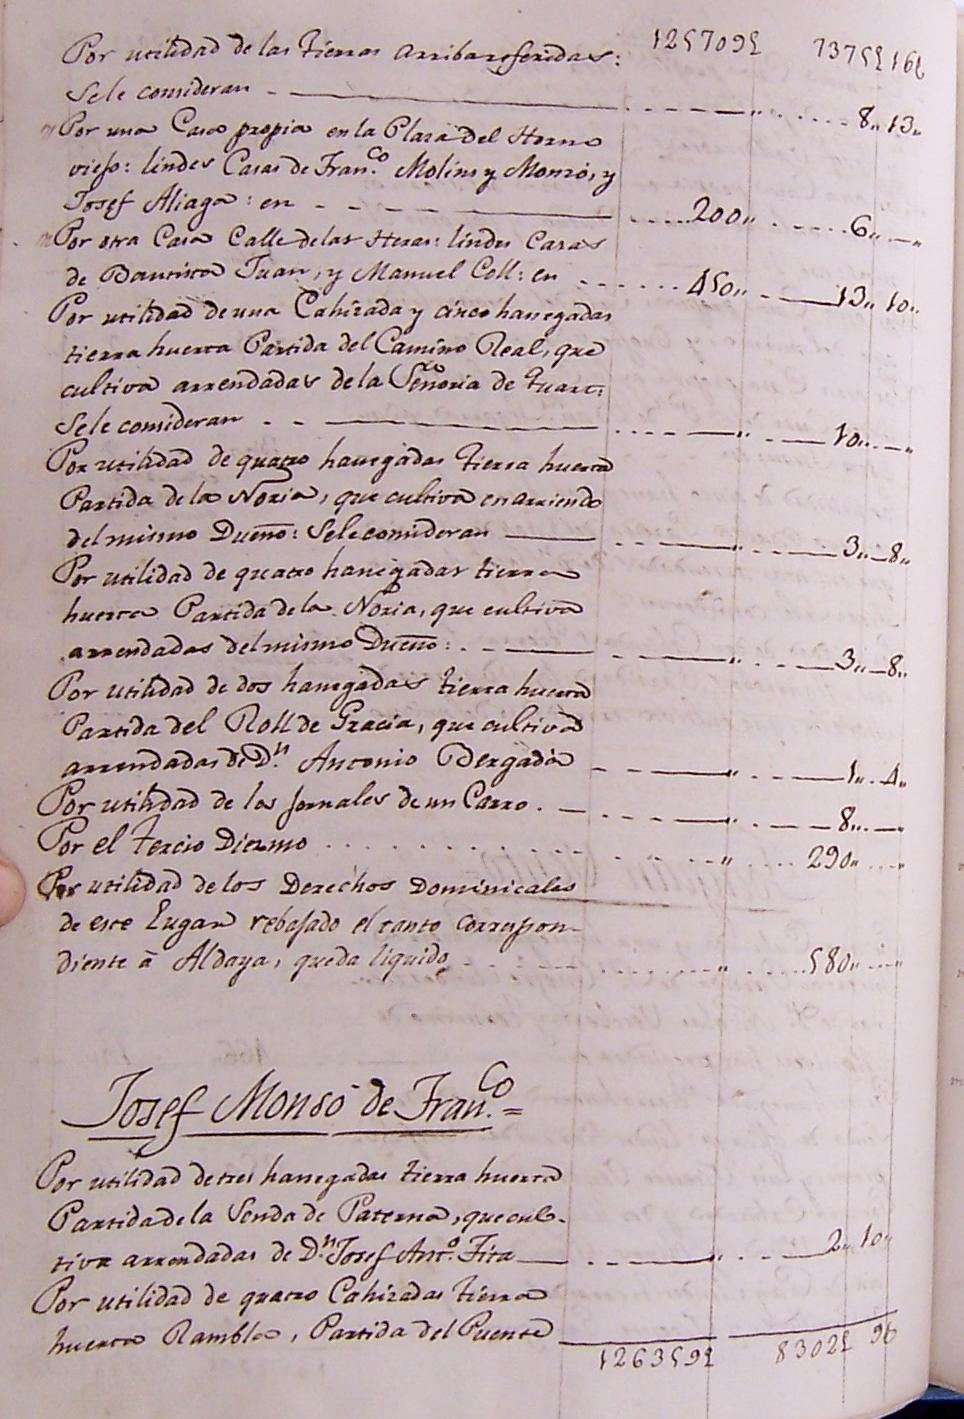 125709 73759 169
Por utilidad de las tierras arriba referidas:
Sele consideran - 8,, 13,,
Por una Casa propia en la Plaza del Horno
viejo: lindes Casas de Fran.co Molins y Monzó, y
Josef Aliaga: en - 200,, 6,, -,,
Por otra Casa Calle delas Heras: lindes Casas
de Bautista Juan, y Manuel Coll: en - 450,, 13,, 10,,
Por utilidad de una Cahizada y cinco hanegadas
tierra huerta Partida del Camino Real, que
cultiva arrendadas de la Señoria de Quart:
Sele consideran - ,, 10,, -,,
Por utilidad de quatro hanegadas tierra huerta
Partida de la Noria, que cultiva en arriendo
del mismo Dueño: Sele consideran - ,, 3,, 8,,
Por utilidad de quatro hanegadas tierra
huerta Partida de la Noria, que cultiva
arrendadas del mismo Dueño: - ,, 3,, 8,,
Por utilidad de dos hanegadas tierra huerta
Partida del Roll de Gracia, que cultiva
arrendadas de D.n Antonio Bergada - ,, 1,, 4,,
Por utilidad de los jornales de un Carro. - ,, 8,, -,,
Por el Tercio Diezmo - ,, 290,, ,,
Por utilidad de los Derechos Dominicales
de este Lugar rebajado el tanto correspon-
diente à Aldaya, queda liquido - ,, 580,, ,,
Josef Monsó de Fran.co =
Por utilidad de tres hanegadas tierra huerta
Partida de la Senda de Paterna, que cul-
tiva arrendadas de D.n Josef Ant.o Fita - ,, 2,, 10,,
Por utilidad de quatro Cahizadas tierra
huerta Rambla, Partida del Puente
126359 8302 96